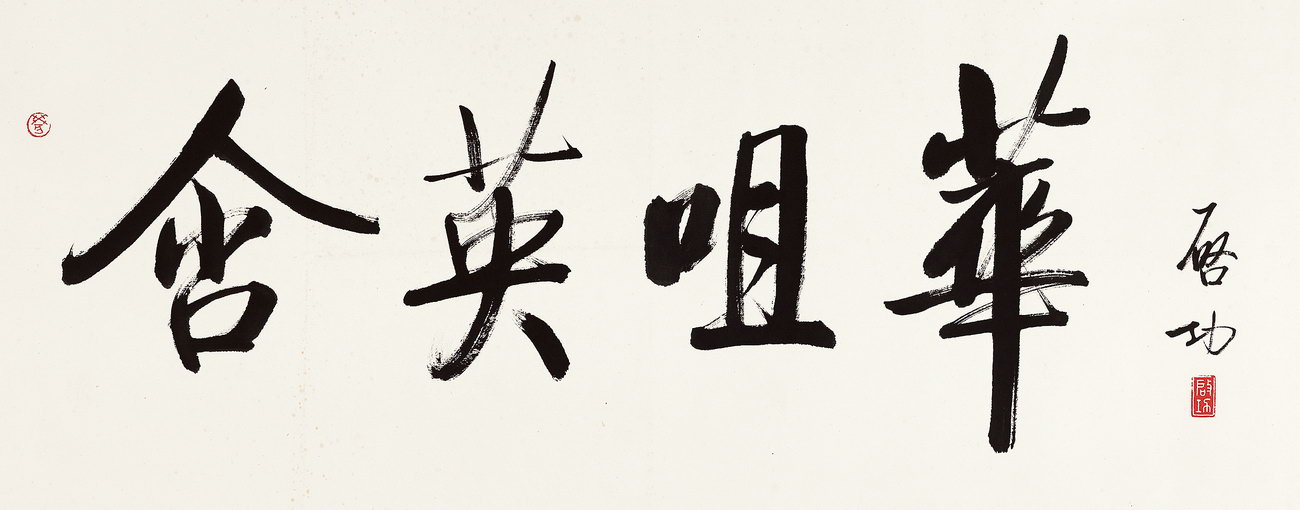 含英咀華
啓功
啓功